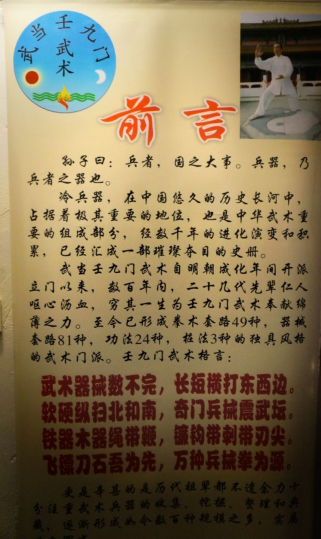 武当壬九门
武术
前言
孙子曰：兵者，国之大事。兵器，乃
兵者之器也。
冷兵器，在中国悠久的历史长河中，
占据着极其重要的地位，也是中华武术重
要的组成部分，经数千年的进化演变和积
累，已经汇成一部璀璨夺目的史册。
武当壬九门武术自明朝成化年间开派
立门以来，数百年内，二十几代先辈仁人
呕心沥血，穷其一生为壬九门武术奉献绵
薄之力。至今已形成拳术套路49种，器械
套路81种，功法24种，技法3种的独具风格
的武术门派。壬九门武术格言：
武术器械数不完，长短横打东西边。
软硬纵扫北和南，奇门兵械震武坛。
铁器木器绳带鞭，镰钩带刺带刃尖。
飞镖刀石吾为先，万种兵械拳为源。
更是尊甚的是历代祖辈都不遗余力十
分注重武术兵器的收集，挖掘、整理和典
藏，逐渐形成如今数百种规模之多，实属